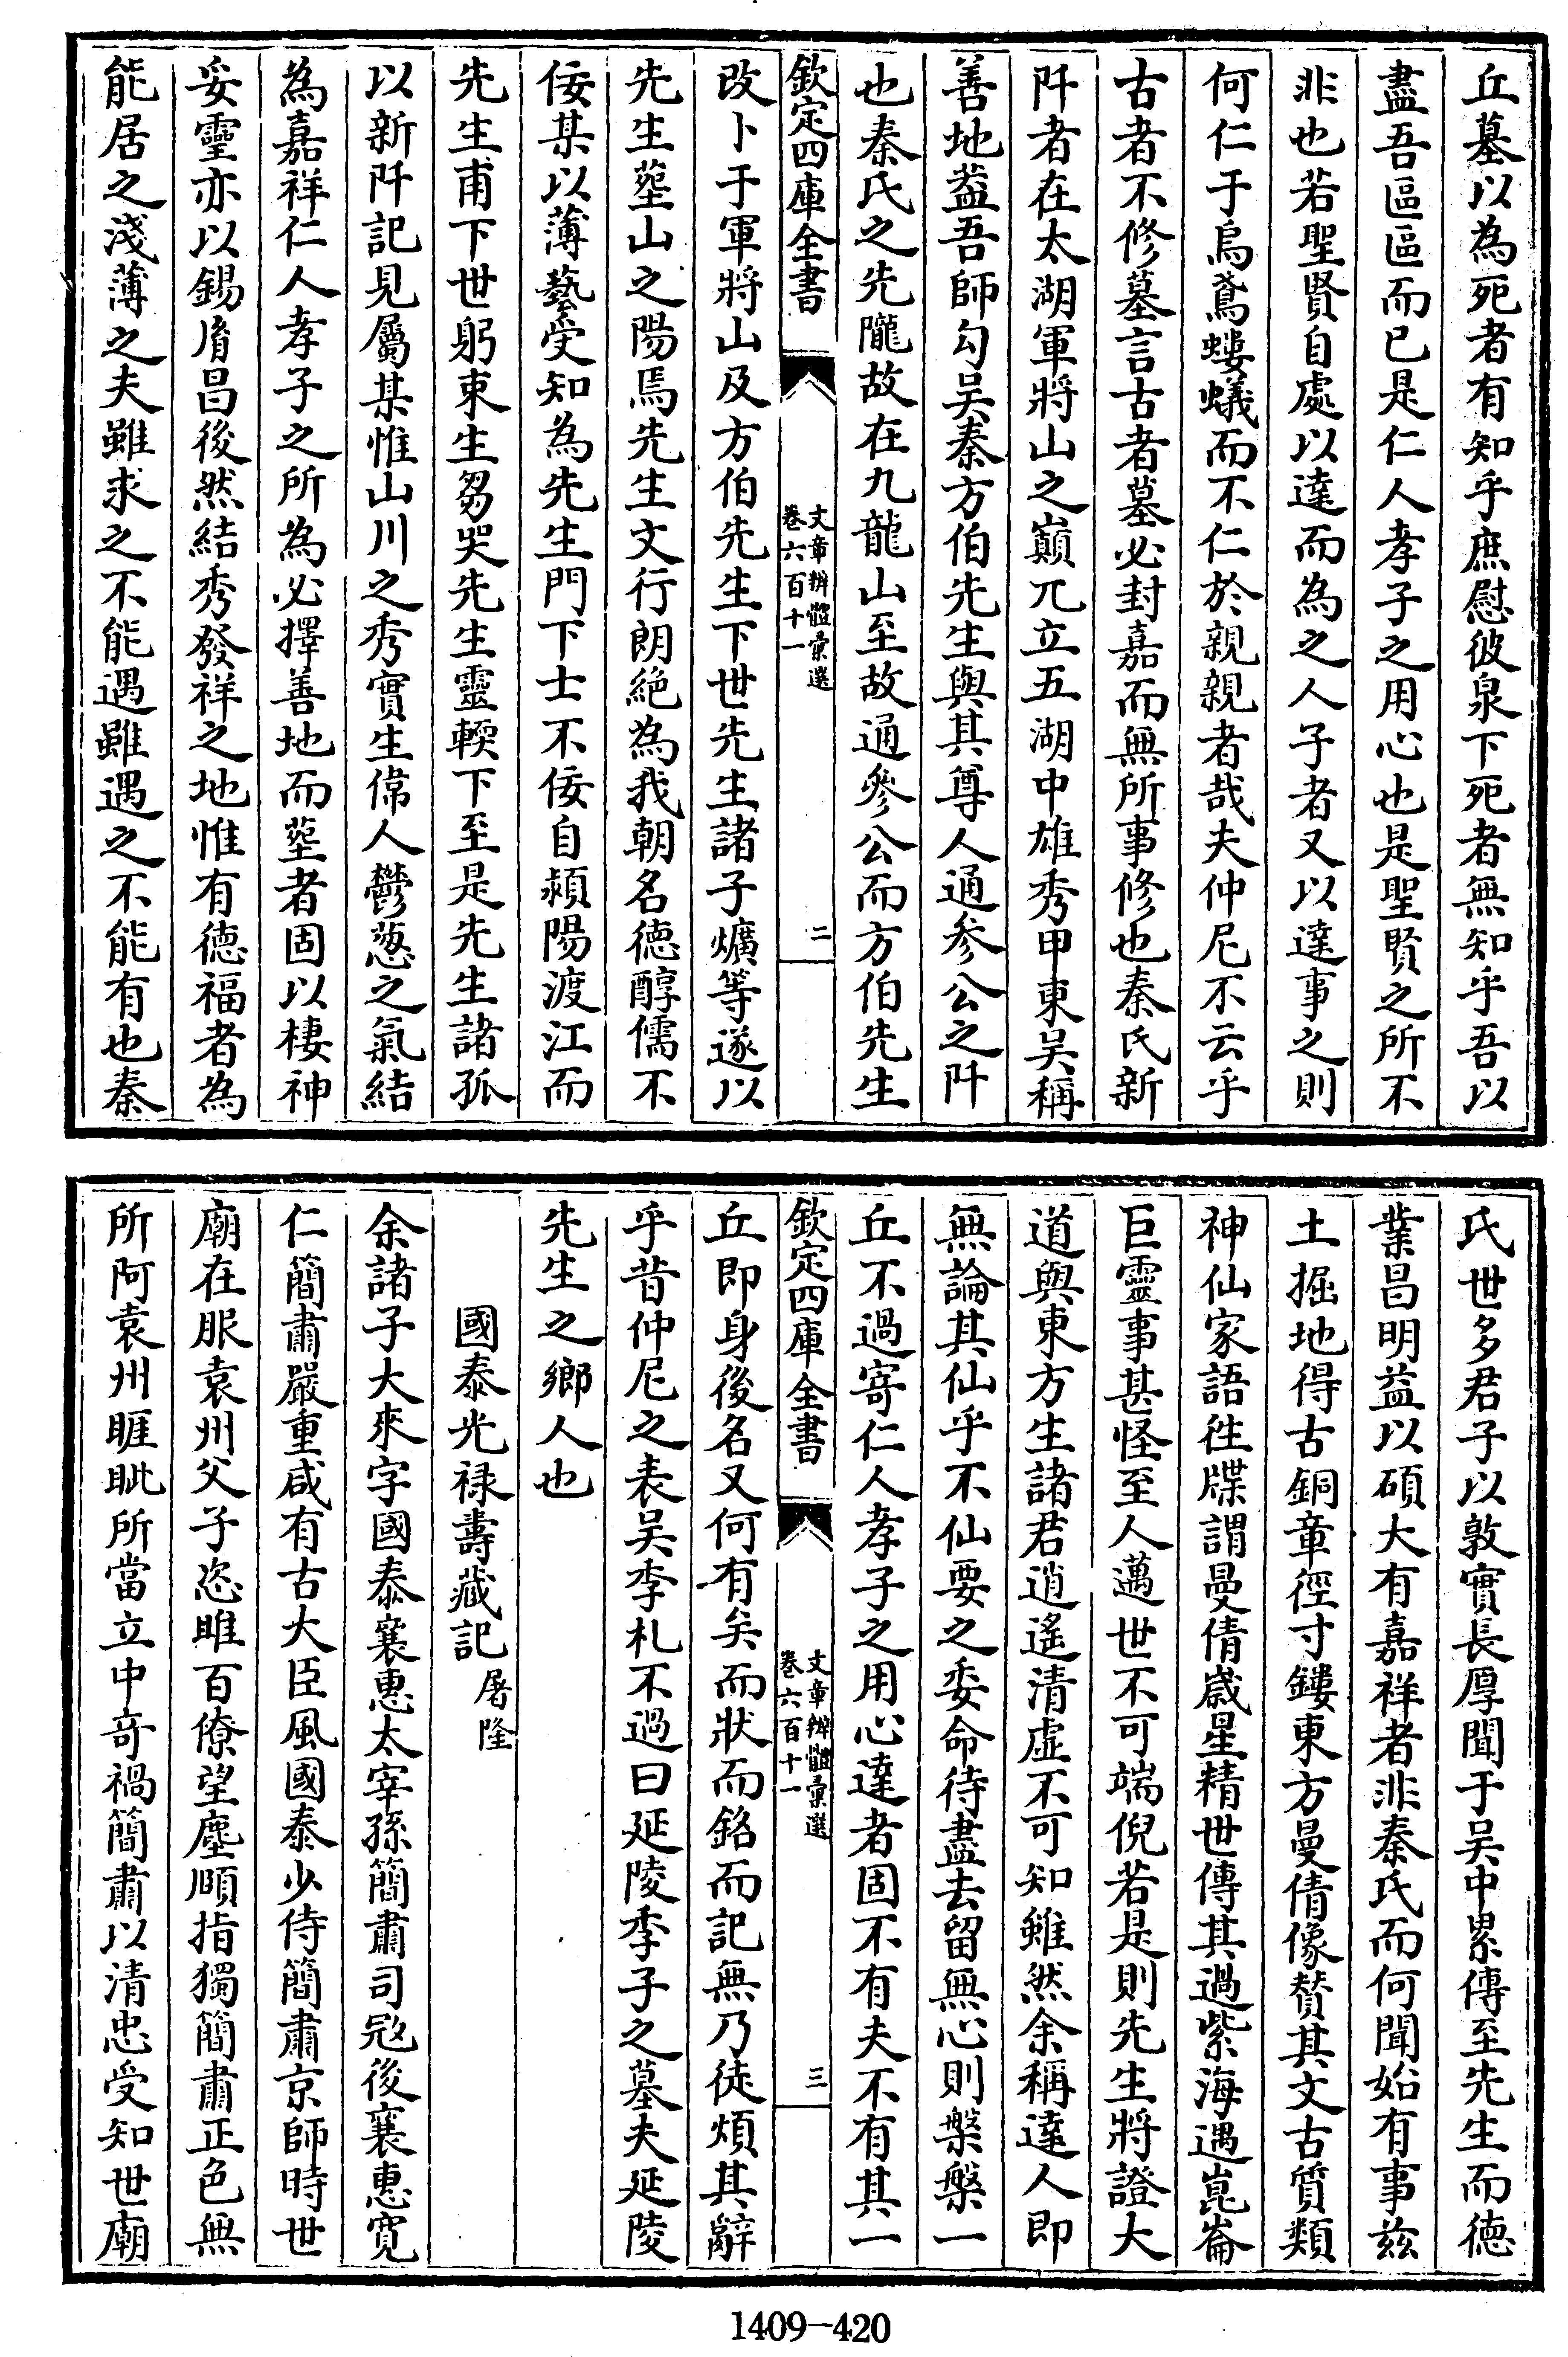 丘墓以為死者有知乎庶慰彼泉下死者無知乎吾以
盡吾區區而已是仁人孝子之用心也是聖賢之所不
非也若聖賢自處以達而為之人子者又以達事之則
何仁于烏鳶螻蟻而不仁於親親者哉夫仲尼不云乎
古者不修墓言古者墓必封嘉而無所事修也秦氏新
阡者在太湖軍將山之巔兀立五湖中雄秀甲東吳稱
善地葢吾師勾吳秦方伯先生與其尊人通參公之阡
也秦氏之先隴故在九龍山至故通參公而方伯先生
欽定四庫全書
文章辨體彙選
卷六百十一
二
改卜于軍將山及方伯先生下世先生諸子爌等遂以
先生塟山之陽焉先生文行朗絕為我朝名德醇儒不
佞某以薄藝受知為先生門下士不佞自潁陽渡江而
先生甫下世躬束生芻哭先生靈輀下至是先生諸孤
以新阡記見屬某惟山川之秀實生偉人鬱葱之氣結
為嘉祥仁人孝子之所為必擇善地而塟者固以棲神
妥靈亦以錫胤昌後然結秀發祥之地惟有德福者為
能居之淺薄之夫雖求之不能遇雖遇之不能有也秦
氏世多君子以敦實長厚聞于吳中累傳至先生而德
業昌明益以碩大有嘉祥者非秦氏而何聞始有事兹
土掘地得古銅章徑寸鏤東方曼倩像贊其文古質類
神仙家語徃牒謂曼倩歲星精世傳其過紫海遇崑崙
巨靈事甚怪至人邁世不可端倪若是則先生將證大
道與東方生諸君逍遙清虛不可知雖然余稱達人即
無論其仙乎不仙要之委命待盡去留無心則槃槃一
丘不過寄仁人孝子之用心達者固不有夫不有其一
欽定四庫全書
文章辨體彙選
卷六百十一
三
丘即身後名又何有矣而狀而銘而記無乃徒煩其辭
乎昔仲尼之表吳季札不過曰延陵季子之墓夫延陵
先生之鄉人也
國泰光祿壽藏記 屠隆
余諸子大來字國泰襄惠太宰孫簡肅司宼後襄惠寛
仁簡肅嚴重咸有古大臣風國泰少侍簡肅京師時世
廟在服袁州父子恣雎百僚望塵順指獨簡肅正色無
所阿袁州睚眦所當立中竒禍簡肅以清忠受知世廟
1409-420